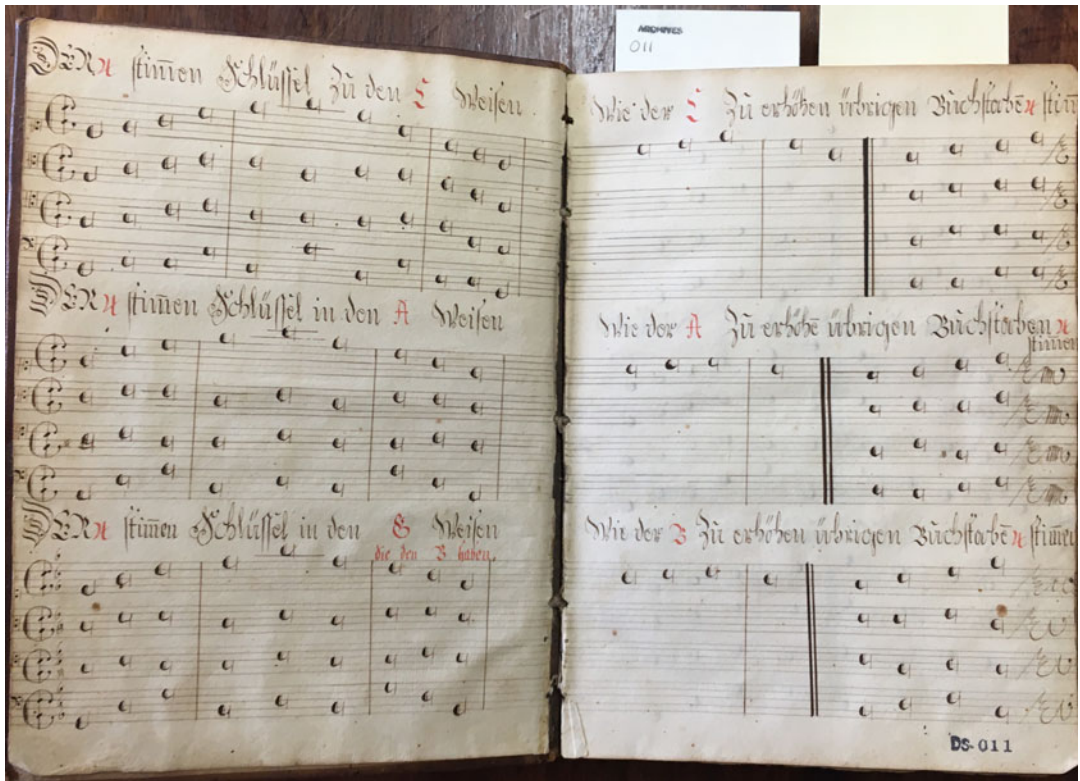 011
DER 4 stim̄en Schlüssel Zu den C Weisen.
DER 4 stim̄en Schlüssel in den A Weisen
DER 4 stim̄en Schlüssel in den G Weisen
die den B haben.
Wie der C Zu erhöhen übrigen Buchstaben 4 stim̄
Wie der A Zu erhöhē übrigen Buchstaben 4
stim̄en
Wie der B Zu erhöhen übrigen Buchstabē 4 stim̄en
DS-011